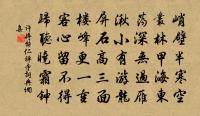 峭壁半寒空
叢林甲海東
蕩深無過雁
湫小有游龍
屏石高三面
樓峰更一重
客心留不得
歸聽晚霜鐘